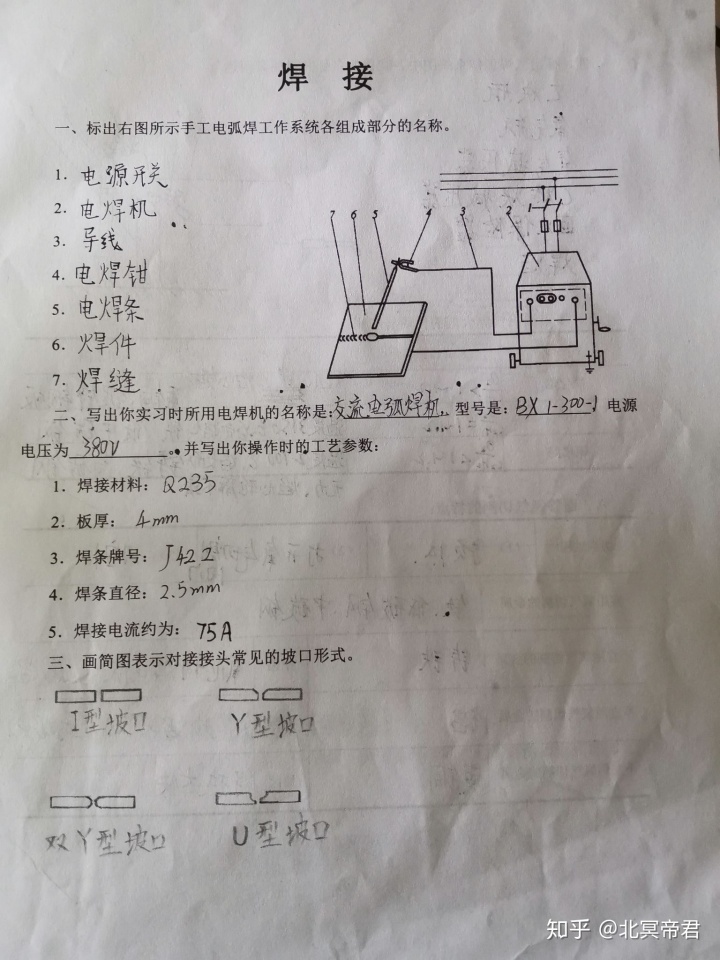 焊 接
一、标出右图所示手工电弧焊工作系统各组成部分的名称。
1. 电源开关
2. 电焊机
3. 导线
4. 电焊钳
5. 电焊条
6. 焊件
7. 焊缝
7 6 5 4 3 2 1
二、写出你实习时所用电焊机的名称是:交流电弧焊机,型号是:BX1-300-1 电源
电压为 380V 。并写出你操作时的工艺参数:
1. 焊接材料: Q235
2. 板厚: 4mm
3. 焊条牌号: J422
4. 焊条直径: 2.5mm
5. 焊接电流约为: 75A
三、画简图表示对接接头常见的坡口形式。
I型坡口 Y型坡口
双Y型坡口 U型坡口
知乎 @北冥帝君